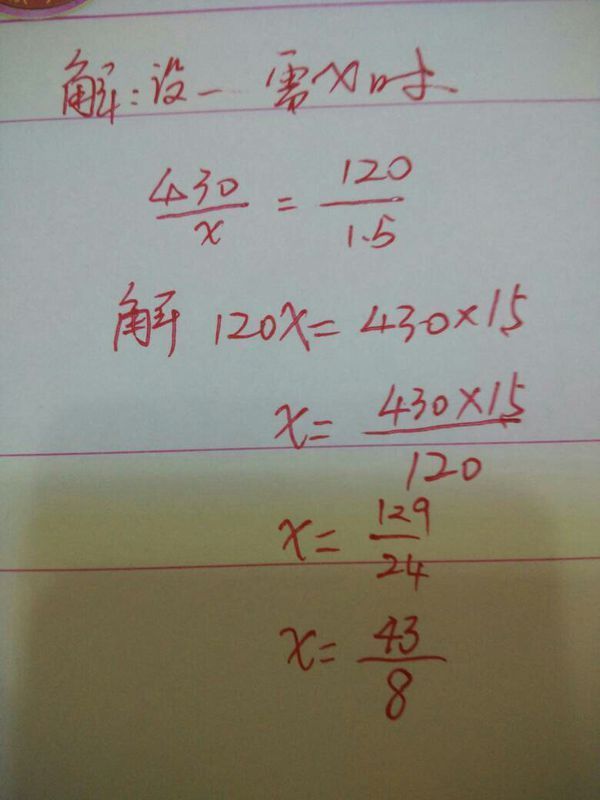 解:设一 需x时
430/x = 120/1.5
解 120x=430×15
x= 430×15/120
x= 129/24
x= 43/8